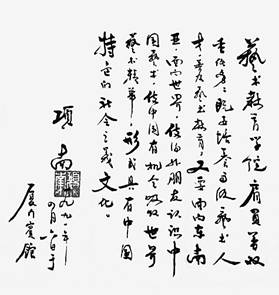 艺术教育学院肩负着双
重任务，既要培养高级艺术人
才，普及艺术教育，又要面向东南
亚、面向世界，使海外朋友认识中
国艺术，使中国有机会吸收世界
艺术精华，形成具有中国
特色的社会主义文化。
项南
一九九一年
四月六日于
厦门宾馆